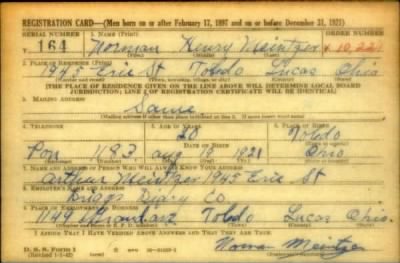 REGISTRATION CARD—(Men born on or after February 17, 1897 and on or before December 31, 1921)
SERIAL NUMBER 1. NAME (Print) ORDER NUMBER
T 164 Norman Henry Meintzer 10,221
2. PLACE OF RESIDENCE (Print)
1945 Erie St Toledo Lucas Ohio
(Number and street) (Town, township, village, or city) (County) (State)
[THE PLACE OF RESIDENCE GIVEN ON THE LINE ABOVE WILL DETERMINE LOCAL BOARD
JURISDICTION; LINE 2 OF REGISTRATION CERTIFICATE WILL BE IDENTICAL]
3. MAILING ADDRESS
Same
(Mailing address if other than place indicated on line 2. If same insert word same)
4. TELEPHONE 5. AGE IN YEARS 6. PLACE OF BIRTH
20 Toledo
DATE OF BIRTH
1183 Aug 18 1921 Ohio
7. NAME AND ADDRESS OF PERSON WHO WILL ALWAYS KNOW YOUR ADDRESS
Arthur Meintzer 1945 Erie St
8. EMPLOYER'S NAME AND ADDRESS
Driggs Dairy Co
9. PLACE OF EMPLOYMENT OR BUSINESS
1149 Toledo Lucas Ohio
I AFFIRM THAT I HAVE VERIFIED ABOVE ANSWERS AND THAT THEY ARE TRUE.
D. S. S. Form 1
(Revised 1-1-42)
Norman Meintzer